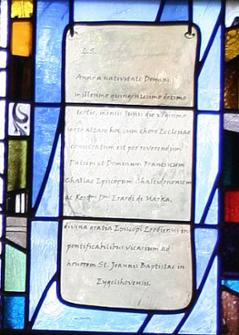 L.S.
Anno a nativitate Domini
millesimo quingentesimo decimo
tertio, mensis Junii die vigesimo
altare hoc cum choro Ecclesiae
consecratum est per reverendum
Patrem et Dominum Franciscum
Episcopum
ac Erardi de Marka,
divina gratia Episcopi Leodiensis in
pontificalibus vicarium ad
honorem St. Joannis Baptistae in
Eygelshovensis.